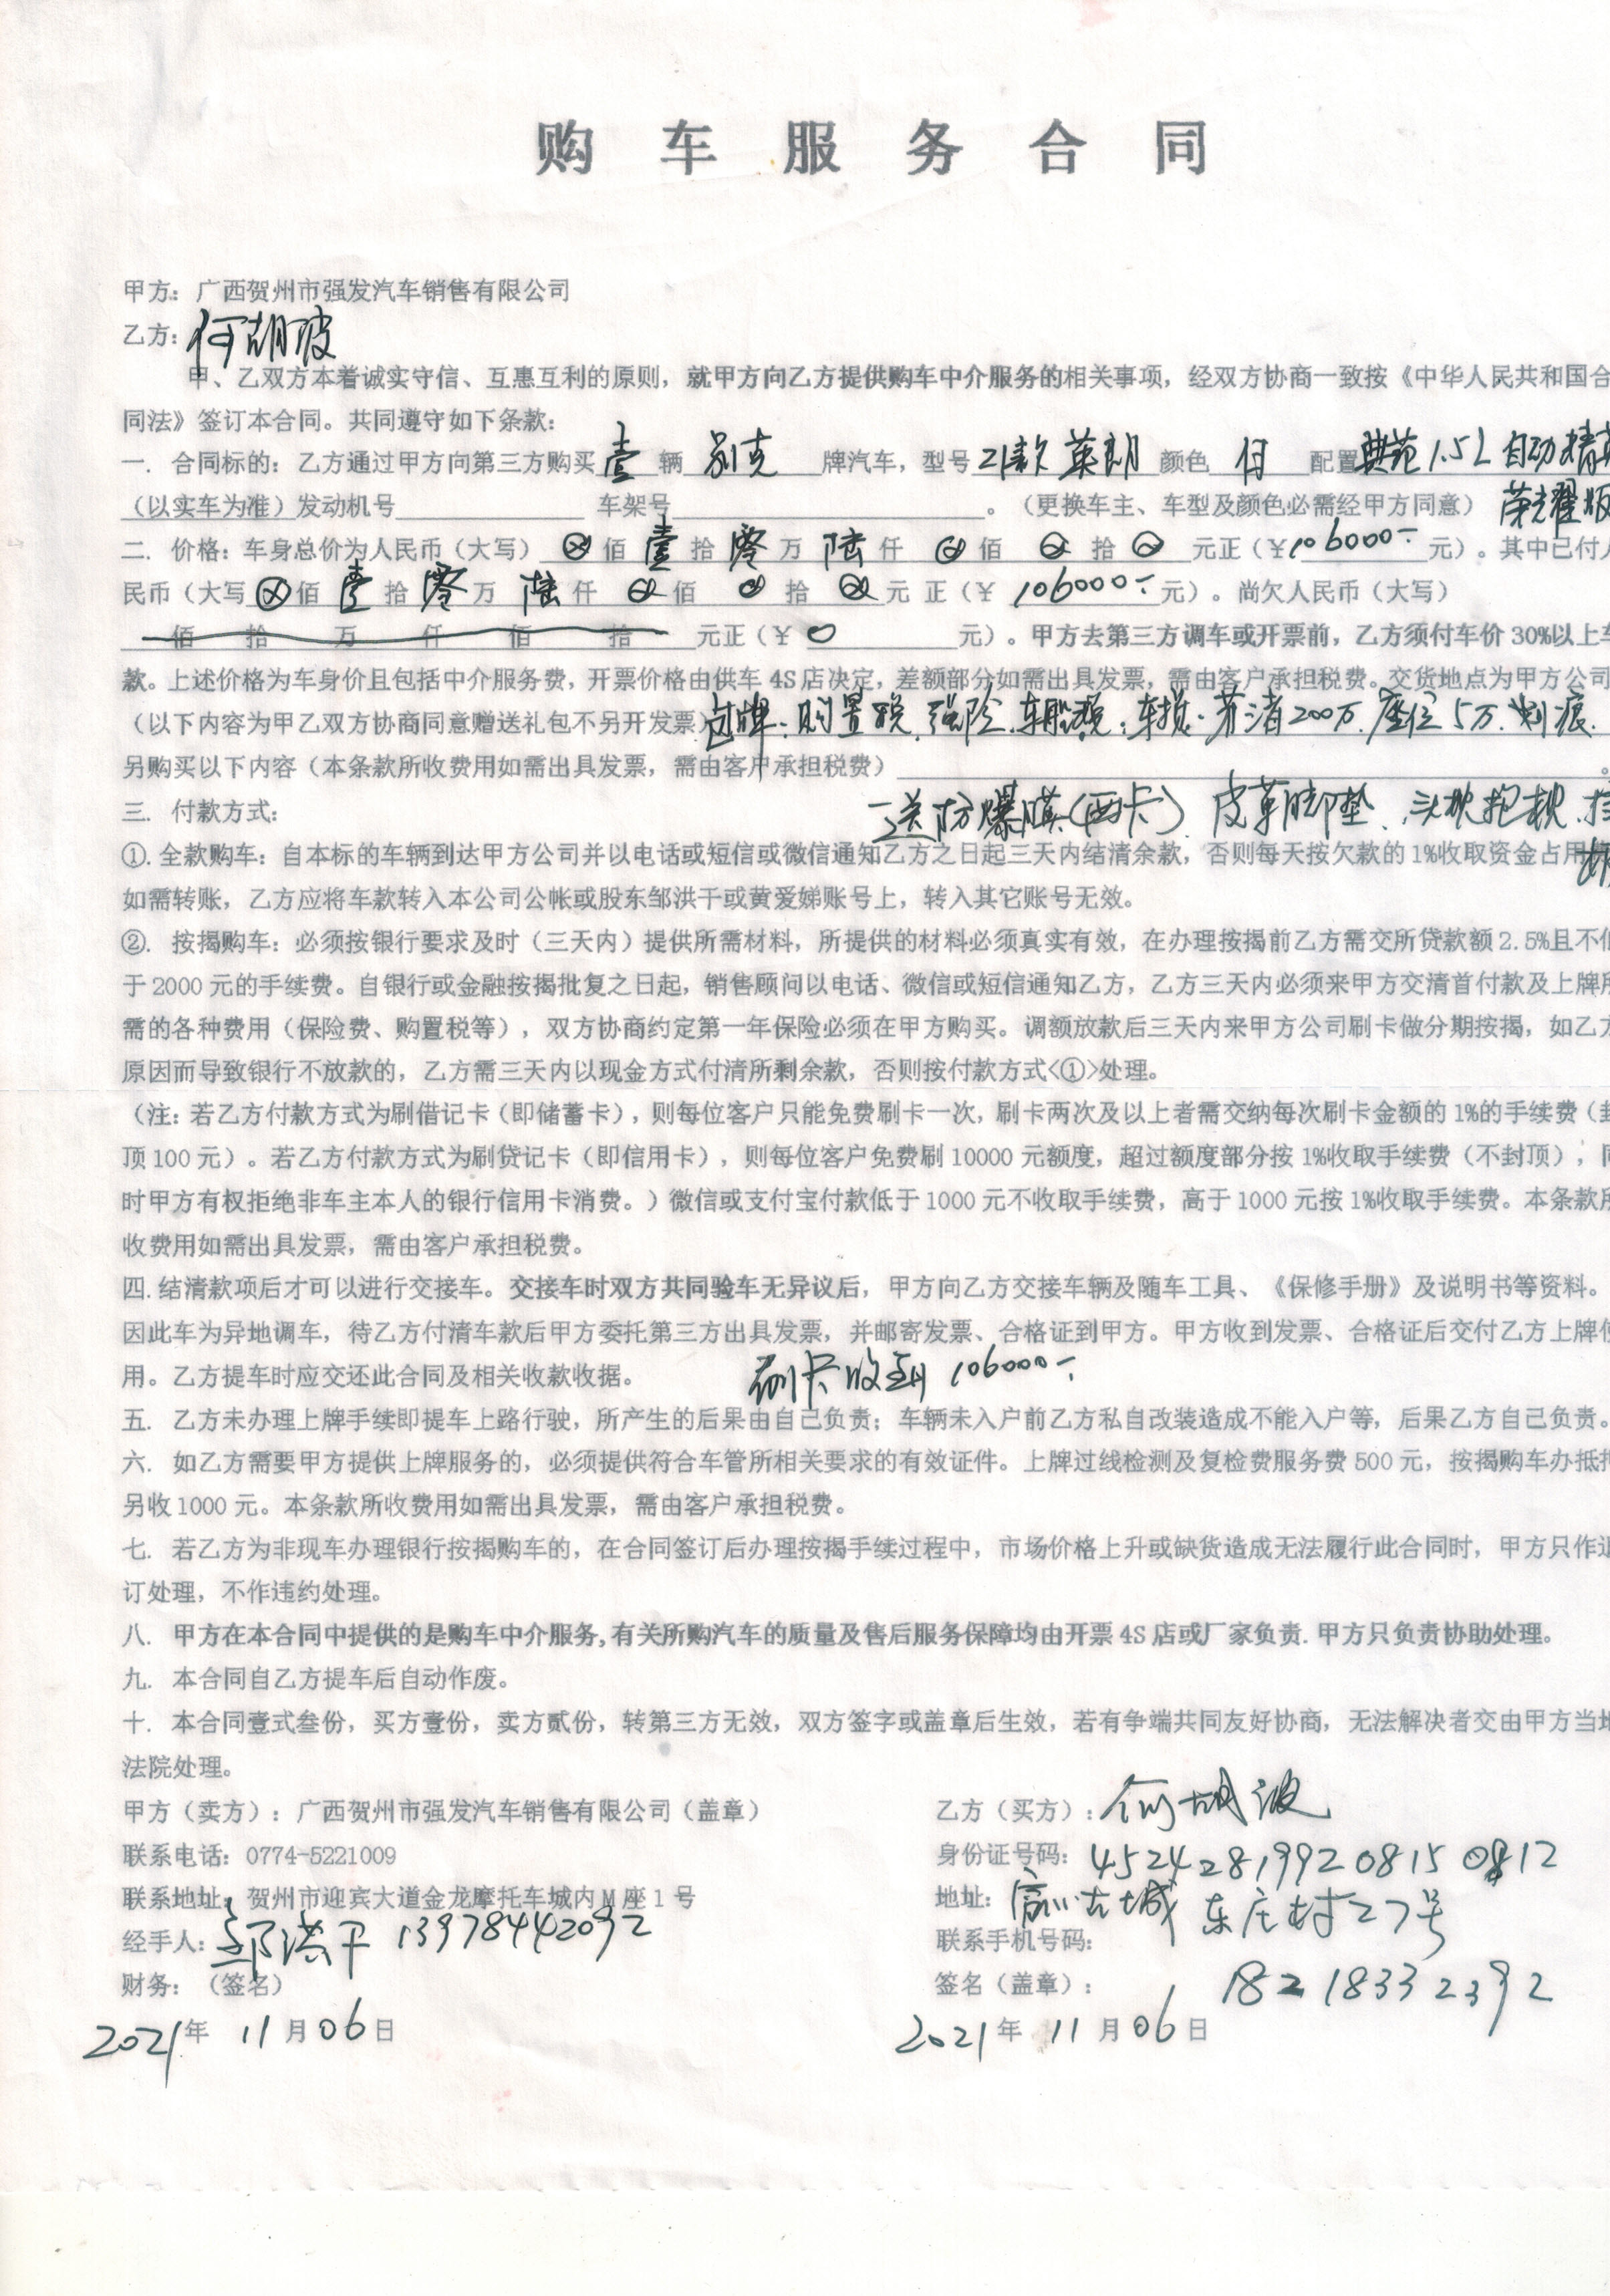 购车服务合同
甲方：广西贺州市强发汽车销售有限公司
乙方：何胡波
甲、乙双方本着诚实守信、互惠互利的原则，就甲方向乙方提供购车中介服务的相关事项，经双方协商一致按《中华人民共和国合
同法》签订本合同。共同遵守如下条款：
一. 合同标的：乙方通过甲方向第三方购买 壹 辆 别克 牌汽车，型号 21款 英朗 颜色 白 配置 典范 1.5L 自动精英
（以实车为准）发动机号 车架号 。（更换车主、车型及颜色必需经甲方同意） 荣耀版
二. 价格：车身总价为人民币（大写） ⊗ 佰 壹 拾 零 万 陆 仟 ⊗ 佰 ⊗ 拾 ⊗ 元正（¥ 106000- 元）。其中已付人
民币（大写 ⊗ 佰 壹 拾 零 万 陆 仟 ⊗ 佰 ⊗ 拾 ⊗ 元 正（¥ 106000- 元）。尚欠人民币（大写）
佰 拾 万 仟 佰 拾 元正（¥ 0 元）。甲方去第三方调车或开票前，乙方须付车价 30%以上车
款。上述价格为车身价且包括中介服务费，开票价格由供车 4S 店决定，差额部分如需出具发票，需由客户承担税费。交货地点为甲方公司
（以下内容为甲乙双方协商同意赠送礼包不另开发票） 包牌.购置税.强险.车船税.车损.第三者200万.座位5万.划痕.
另购买以下内容（本条款所收费用如需出具发票，需由客户承担税费） 。
三. 付款方式： 送防爆膜（两卡）皮革脚垫、头枕抱枕.
①. 全款购车：自本标的车辆到达甲方公司并以电话或短信或微信通知乙方之日起三天内结清余款，否则每天按欠款的 1%收取资金占用
如需转账，乙方应将车款转入本公司公帐或股东邹洪干或黄爱娣账号上，转入其它账号无效。
②. 按揭购车：必须按银行要求及时（三天内）提供所需材料，所提供的材料必须真实有效，在办理按揭前乙方需交所贷款额 2.5%且不低
于 2000 元的手续费。自银行或金融按揭批复之日起，销售顾问以电话、微信或短信通知乙方，乙方三天内必须来甲方交清首付款及上牌所
需的各种费用（保险费、购置税等），双方协商约定第一年保险必须在甲方购买。调额放款后三天内来甲方公司刷卡做分期按揭，如乙方
原因而导致银行不放款的，乙方需三天内以现金方式付清所剩余款，否则按付款方式<①>处理。
（注：若乙方付款方式为刷借记卡（即储蓄卡），则每位客户只能免费刷卡一次，刷卡两次及以上者需交纳每次刷卡金额的 1%的手续费（封
顶 100 元）。若乙方付款方式为刷贷记卡（即信用卡），则每位客户免费刷 10000 元额度，超过额度部分按 1%收取手续费（不封顶），同
时甲方有权拒绝非车主本人的银行信用卡消费。）微信或支付宝付款低于 1000 元不收取手续费，高于 1000 元按 1%收取手续费。本条款所
收费用如需出具发票，需由客户承担税费。
四. 结清款项后才可以进行交接车。交接车时双方共同验车无异议后，甲方向乙方交接车辆及随车工具、《保修手册》及说明书等资料。
因此车为异地调车，待乙方付清车款后甲方委托第三方出具发票，并邮寄发票、合格证到甲方。甲方收到发票、合格证后交付乙方上牌使
用。乙方提车时应交还此合同及相关收款收据。 刷卡收到 106000-
五. 乙方未办理上牌手续即提车上路行驶，所产生的后果由自己负责；车辆未入户前乙方私自改装造成不能入户等，后果乙方自己负责。
六. 如乙方需要甲方提供上牌服务的，必须提供符合车管所相关要求的有效证件。上牌过线检测及复检费服务费 500 元，按揭购车办抵押
另收 1000 元。本条款所收费用如需出具发票，需由客户承担税费。
七. 若乙方为非现车办理银行按揭购车的，在合同签订后办理按揭手续过程中，市场价格上升或缺货造成无法履行此合同时，甲方只作退
订处理，不作违约处理。
八. 甲方在本合同中提供的是购车中介服务,有关所购汽车的质量及售后服务保障均由开票 4S 店或厂家负责.甲方只负责协助处理。
九. 本合同自乙方提车后自动作废。
十. 本合同壹式叁份，买方壹份，卖方贰份，转第三方无效，双方签字或盖章后生效，若有争端共同友好协商，无法解决者交由甲方当地
法院处理。
甲方（卖方）：广西贺州市强发汽车销售有限公司（盖章） 乙方（买方）：何胡波
联系电话：0774-5221009 身份证号码：452428199208150812
联系地址：贺州市迎宾大道金龙摩托车城内 M 座 1 号 地址：富川古城 东庄村27号
经手人：邹洪干 13978442092 联系手机号码：
财务：（签名） 签名（盖章）： 18218332392
2021年 11月06日 2021年 11月06日